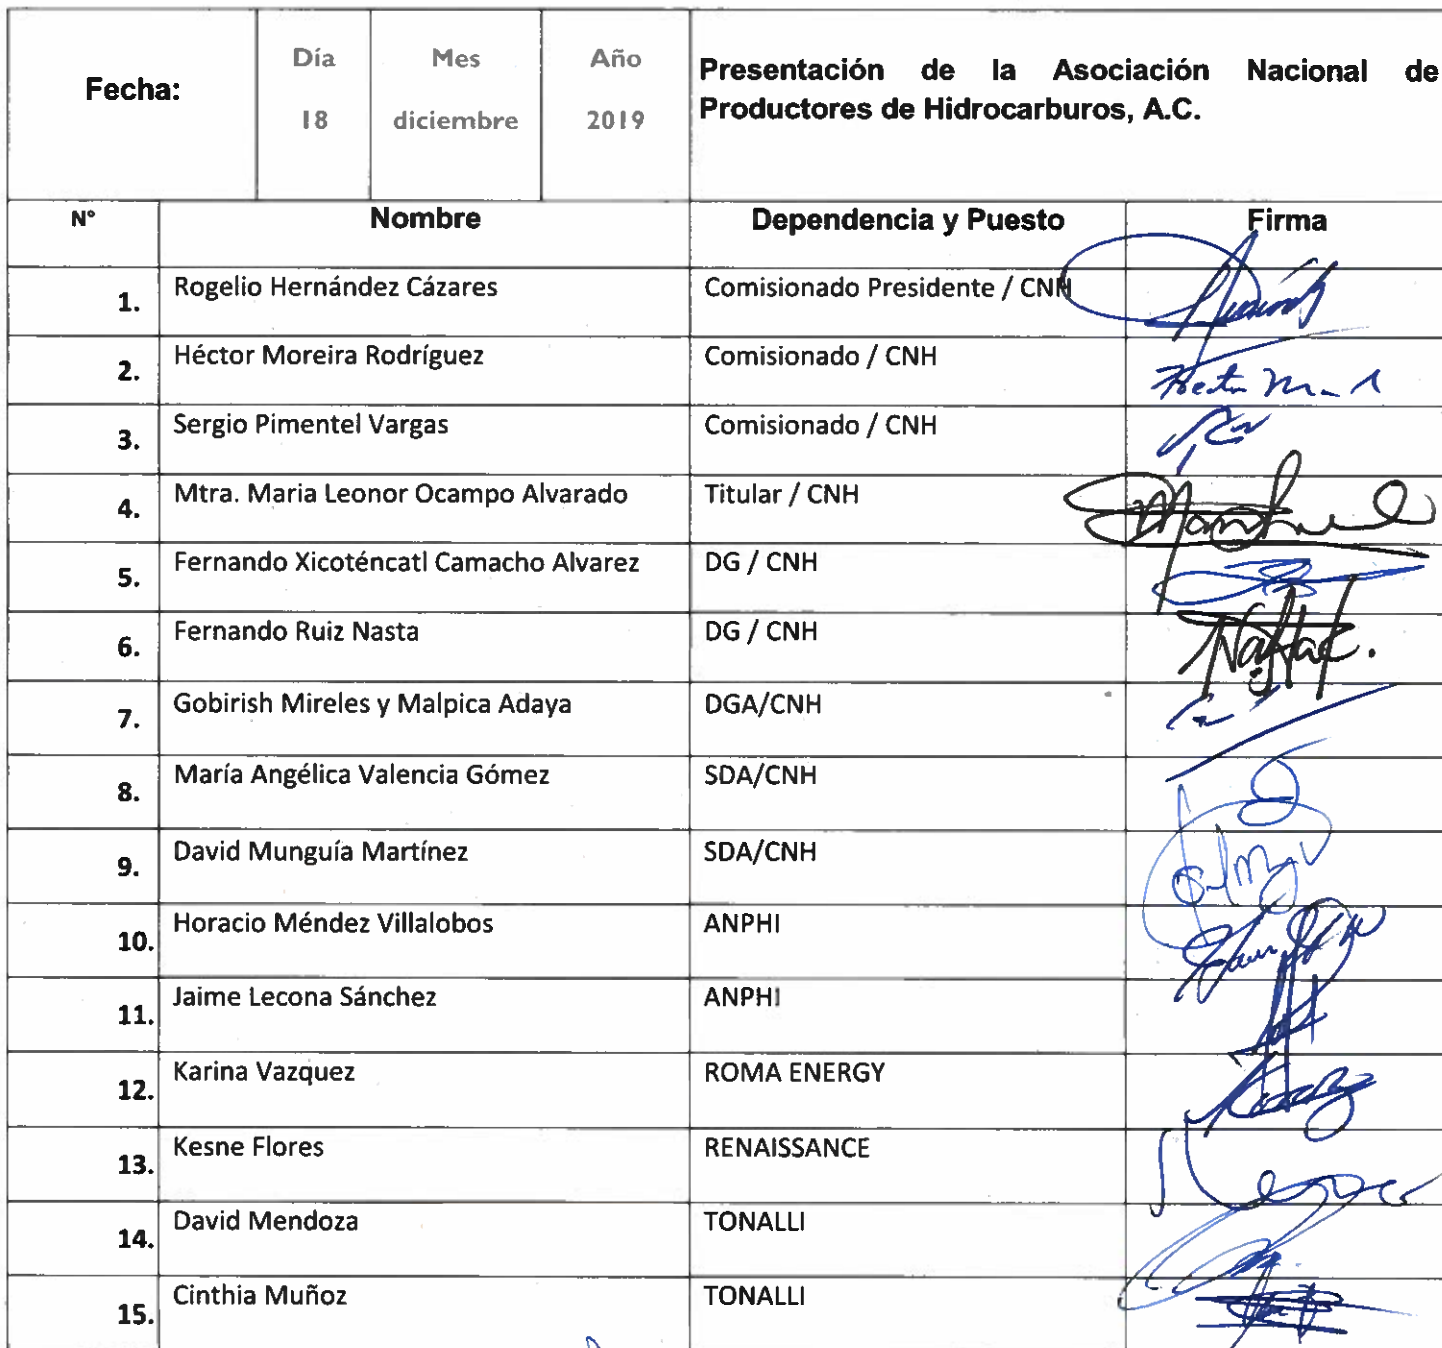 Fecha: Día Mes Año Presentación de la Asociación Nacional de
18 diciembre 2019 Productores de Hidrocarburos, A.C.
N° Nombre Dependencia y Puesto Firma
1. Rogelio Hernández Cázares Comisionado Presidente / CNH
2. Héctor Moreira Rodríguez Comisionado / CNH
3. Sergio Pimentel Vargas Comisionado / CNH
4. Mtra. Maria Leonor Ocampo Alvarado Titular / CNH
5. Fernando Xicoténcatl Camacho Alvarez DG / CNH
6. Fernando Ruiz Nasta DG / CNH
7. Gobirish Mireles y Malpica Adaya DGA/CNH
8. María Angélica Valencia Gómez SDA/CNH
9. David Munguía Martínez SDA/CNH
10. Horacio Méndez Villalobos ANPHI
11. Jaime Lecona Sánchez ANPHI
12. Karina Vazquez ROMA ENERGY
13. Kesne Flores RENAISSANCE
14. David Mendoza TONALLI
15. Cinthia Muñoz TONALLI